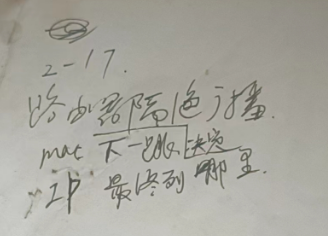 2-17.
路由器隔绝广播.
mac 下一跳决定
IP 最终到哪里.